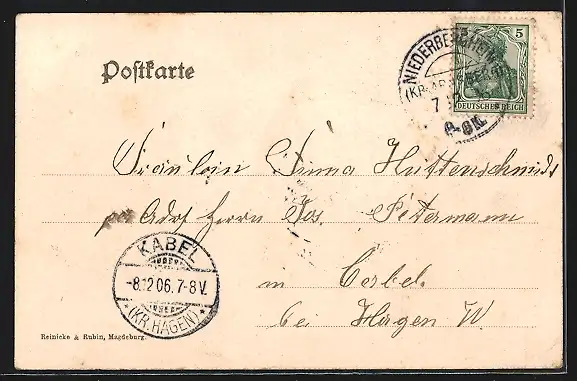 Postkarte
NIEDERBERGHEIM
(KR.
7 12
5
DEUTSCHES REICH
Fräulein Anna Huttenschmidt
per Adr Herrn Jos. Petermann
in Cabel
bei Hagen W.
KABEL
-8.12.06.7-8V.
* (KR.HAGEN) *
Reinicke & Rubin, Magdeburg.